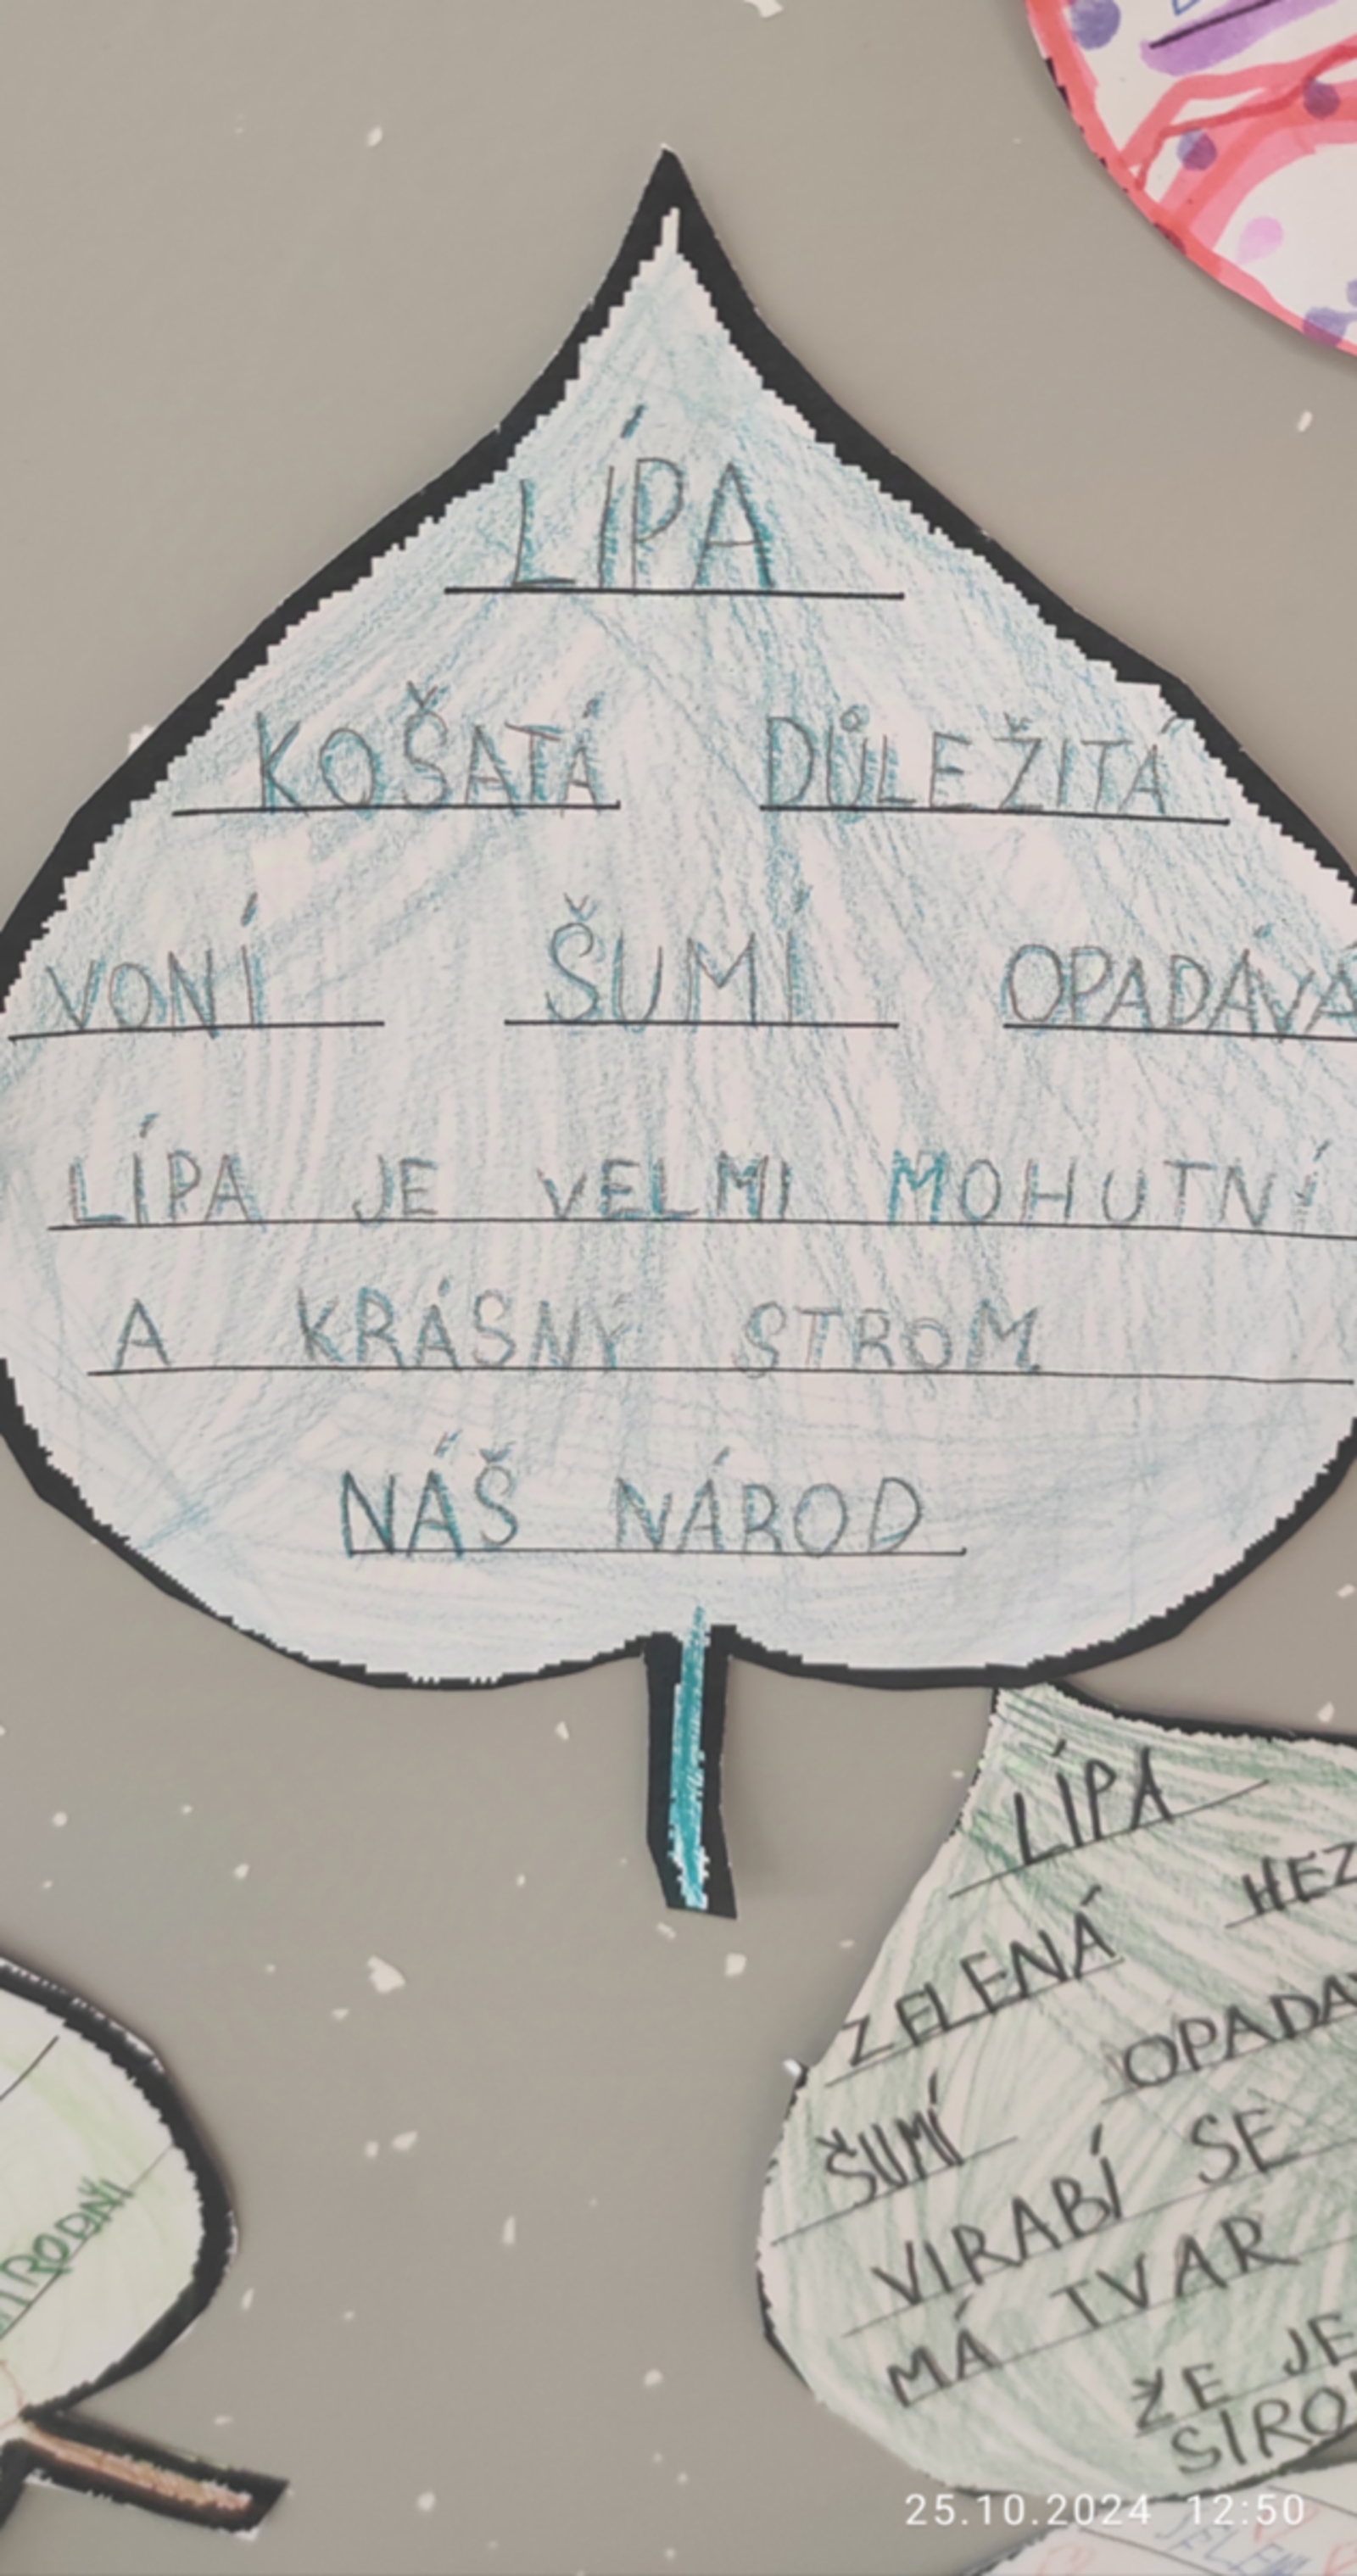 LÍPA
KOŠATÁ DŮLEŽITÁ
VONÍ ŠUMÍ OPADÁVÁ
LÍPA JE VELMI MOHUTNÍ
A KRÁSNY STROM
NÁŠ NÁROD
LÍPA
ZELENÁ HEZ
ŠUMÍ OPADA
VIRABÍ SE
MÁ TVAR
ŽE JE
SIRO
25.10.2024 12:50